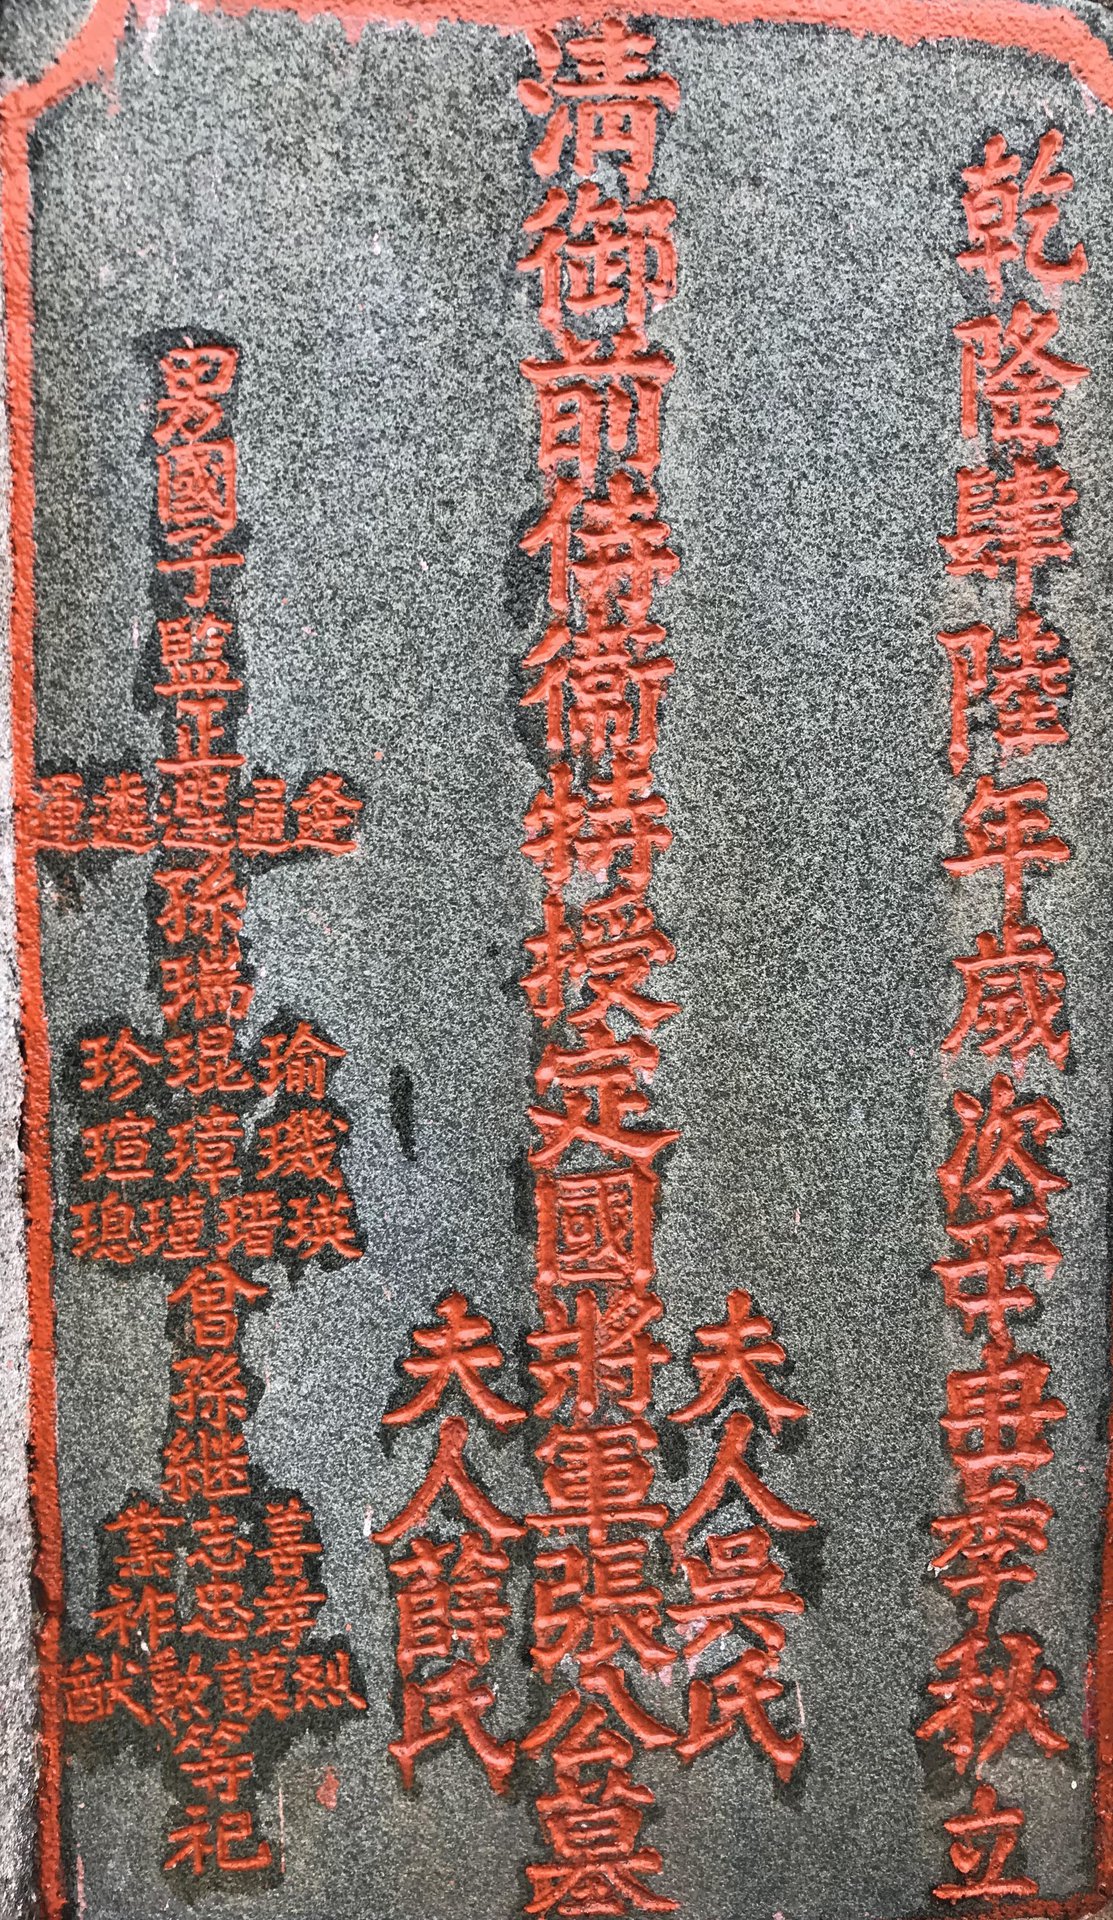 乾隆肆陸年歲次辛丑季秋立
夫人吳氏
清御前侍衛特授定國將軍張公墓
夫人薛氏
男國子監正
遴
孫瑞
瑜琨珍
璣璋瑄
瑛瑨璁
曾孫繼
善志業
孝忠祚
烈謨勲猷
等祀